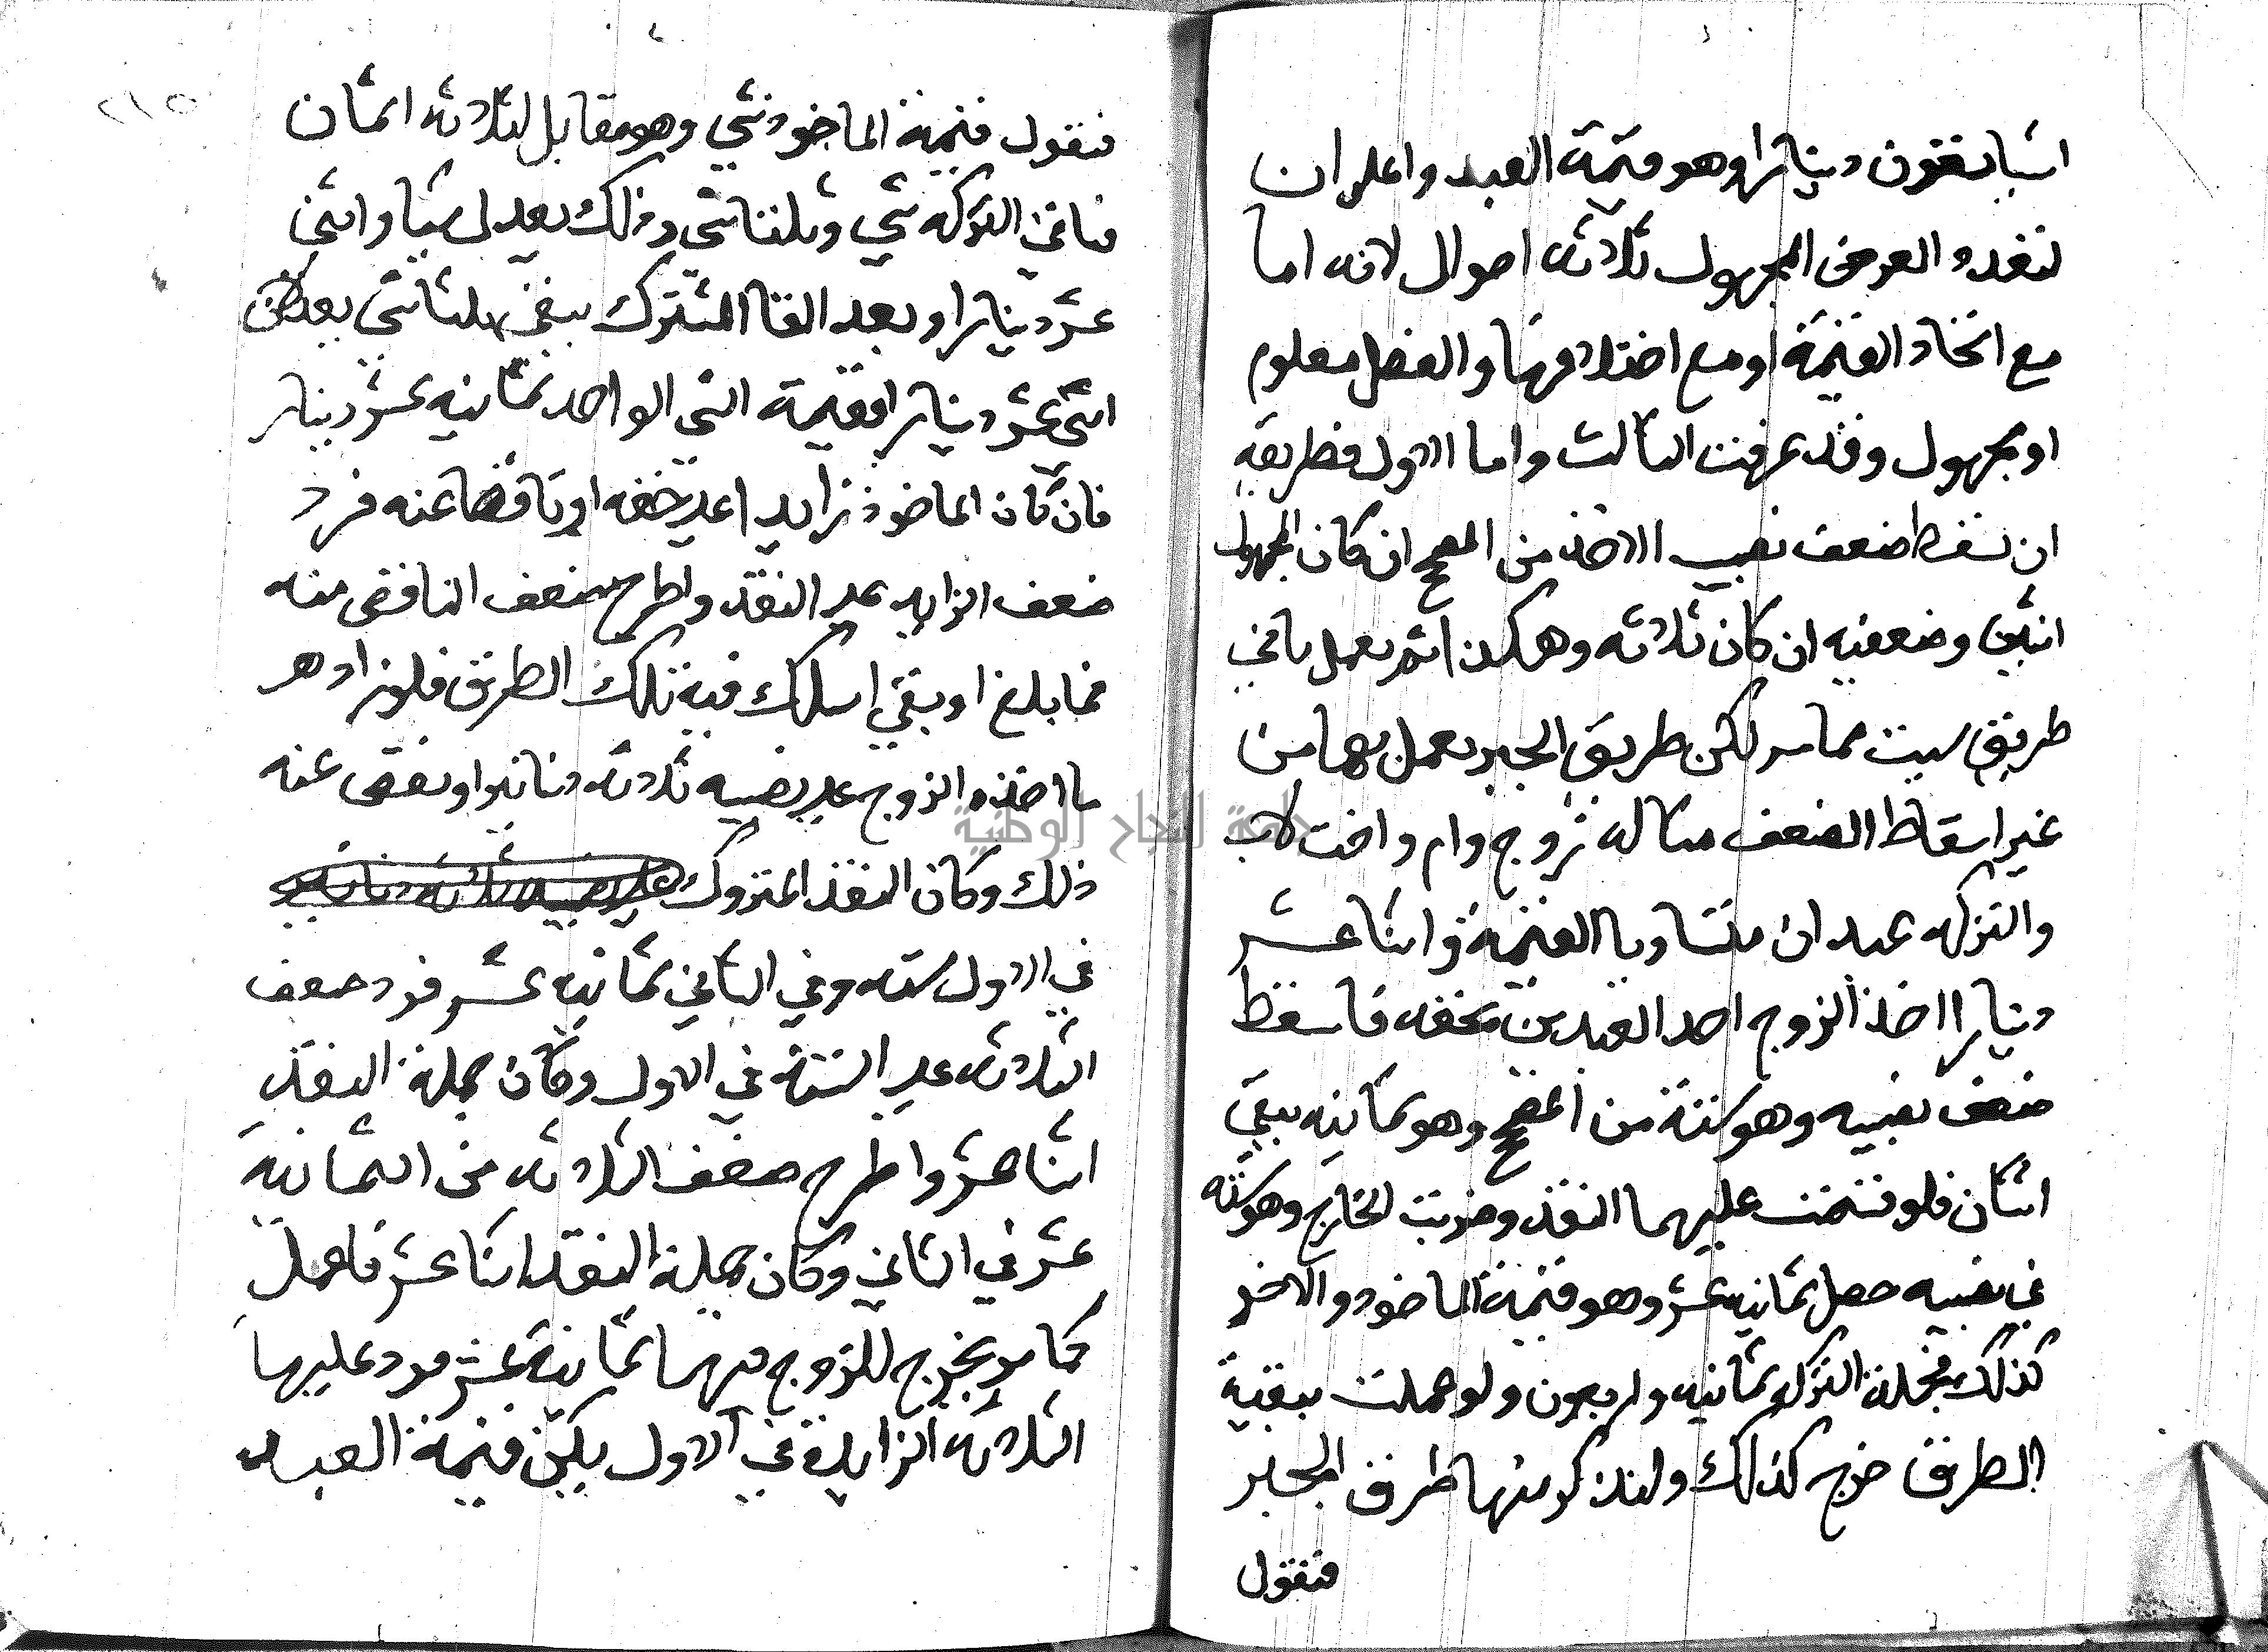 اشيا يقون دينارا وهو قيمة العبد واعلم ان
لتعدد العرض المجهول ثلاثة احوال لانه اما
مع اتحاد القيمة او مع اختلافها والفضل معلوم
او مجهول وقد عرفت الثالث واما الاول فطريقه
ان تسقط ضعف نصيب الاخذ من المصحح ان كان المجهول
اثنين وضعفيه ان كان ثلاثة وهكذا ثم يعمل باي
طريق شيت مما مر لكن طريق الجبر يعمل بها من
غير اسقاط الضعف مثاله زوج وام واخت لاب
والتركه عبدان متساويا القيمة واثنا عشر
دينارا اخذ الزوج احد العبدين بحقه فاسقط
ضعف نصيبه وهو ستة من المصحح وهو ثمانيه يبقي
اثنان فلو قسمت عليهما النقد وضربت الخارج وهو سته
في نصيبه حصل ثمانيه عشر وهو قيمة الماخوذ والاخر
كذلك فجملة التركه ثمانيه واربعون ولو عملت ببقية
الطرق خرج كذلك ولنذكر منها طرق الجبر
فنقول
فنقول قيمة الماخوذ شي وهو مقابل لثلاثه اثمان
فباقي التركه شي وثلثا شي وذلك يعدل شيا واثني
عشر دينارا وبعد القا المشترك يبقي ثلثا شي يعدلن
اثني عشر دينارا فقيمة الشي الواحد ثمانيه عشر دينار
فان كان الماخوذ زايدا علي حقه او ناقصا عنه فزد
ضعف الزايد علي النقد واطرح ضعف الناقص منه
فما بلغ او بقي اسلك فيه تلك الطرق فلو زاد هـ
ما اخذه الزوج علي نصيبه ثلاثه دنانير او نقص عنه
ذلك وكان النقد المتروك
في الاول سته وفي الثاني ثمانيه عشر فزد ضعف
الثلاثه علي الستة في الاول وكان جملة النقد
اثنا عشر واطرح ضعف الثلاثه من الثمانية
عشر في الثاني وكان جملة النقد اثنا عشر فاعمل
كما مر يخرج للزوج منهما ثمانية عشر فزد عليها
الثلاثه الزايدة في الاول يكن قيمة العبد
جامعة النجاح الوطنية